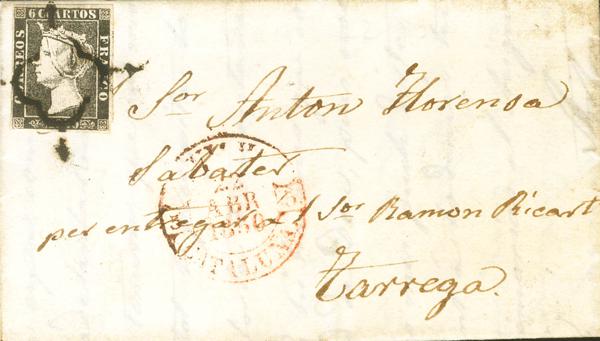 6 CUARTOS
CORREOS
FRANCO
Sor Anton Florensa
Sabater
per entregar a Sor Ramon Ricart
Tarrega.
22
ABR
1850
CATALUÑA